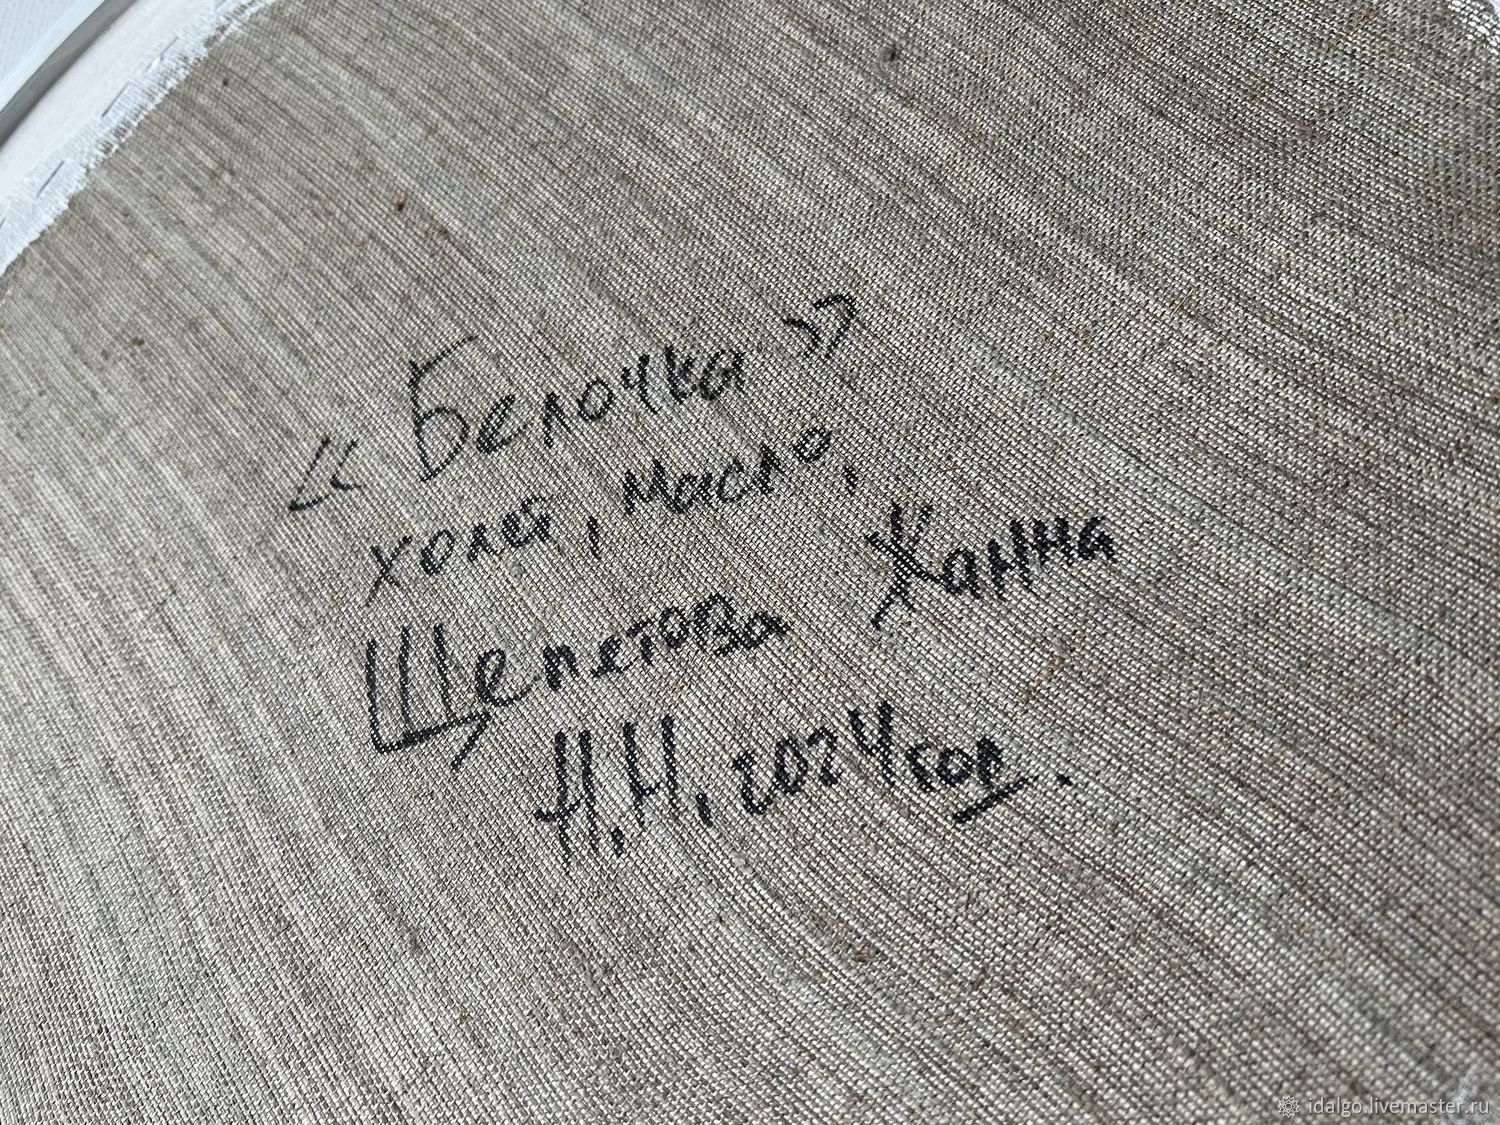 «Белочка»
холст, масло,
Щепетова Ханна
Н.Н, 2024 год.
idalgo.livemaster.ru